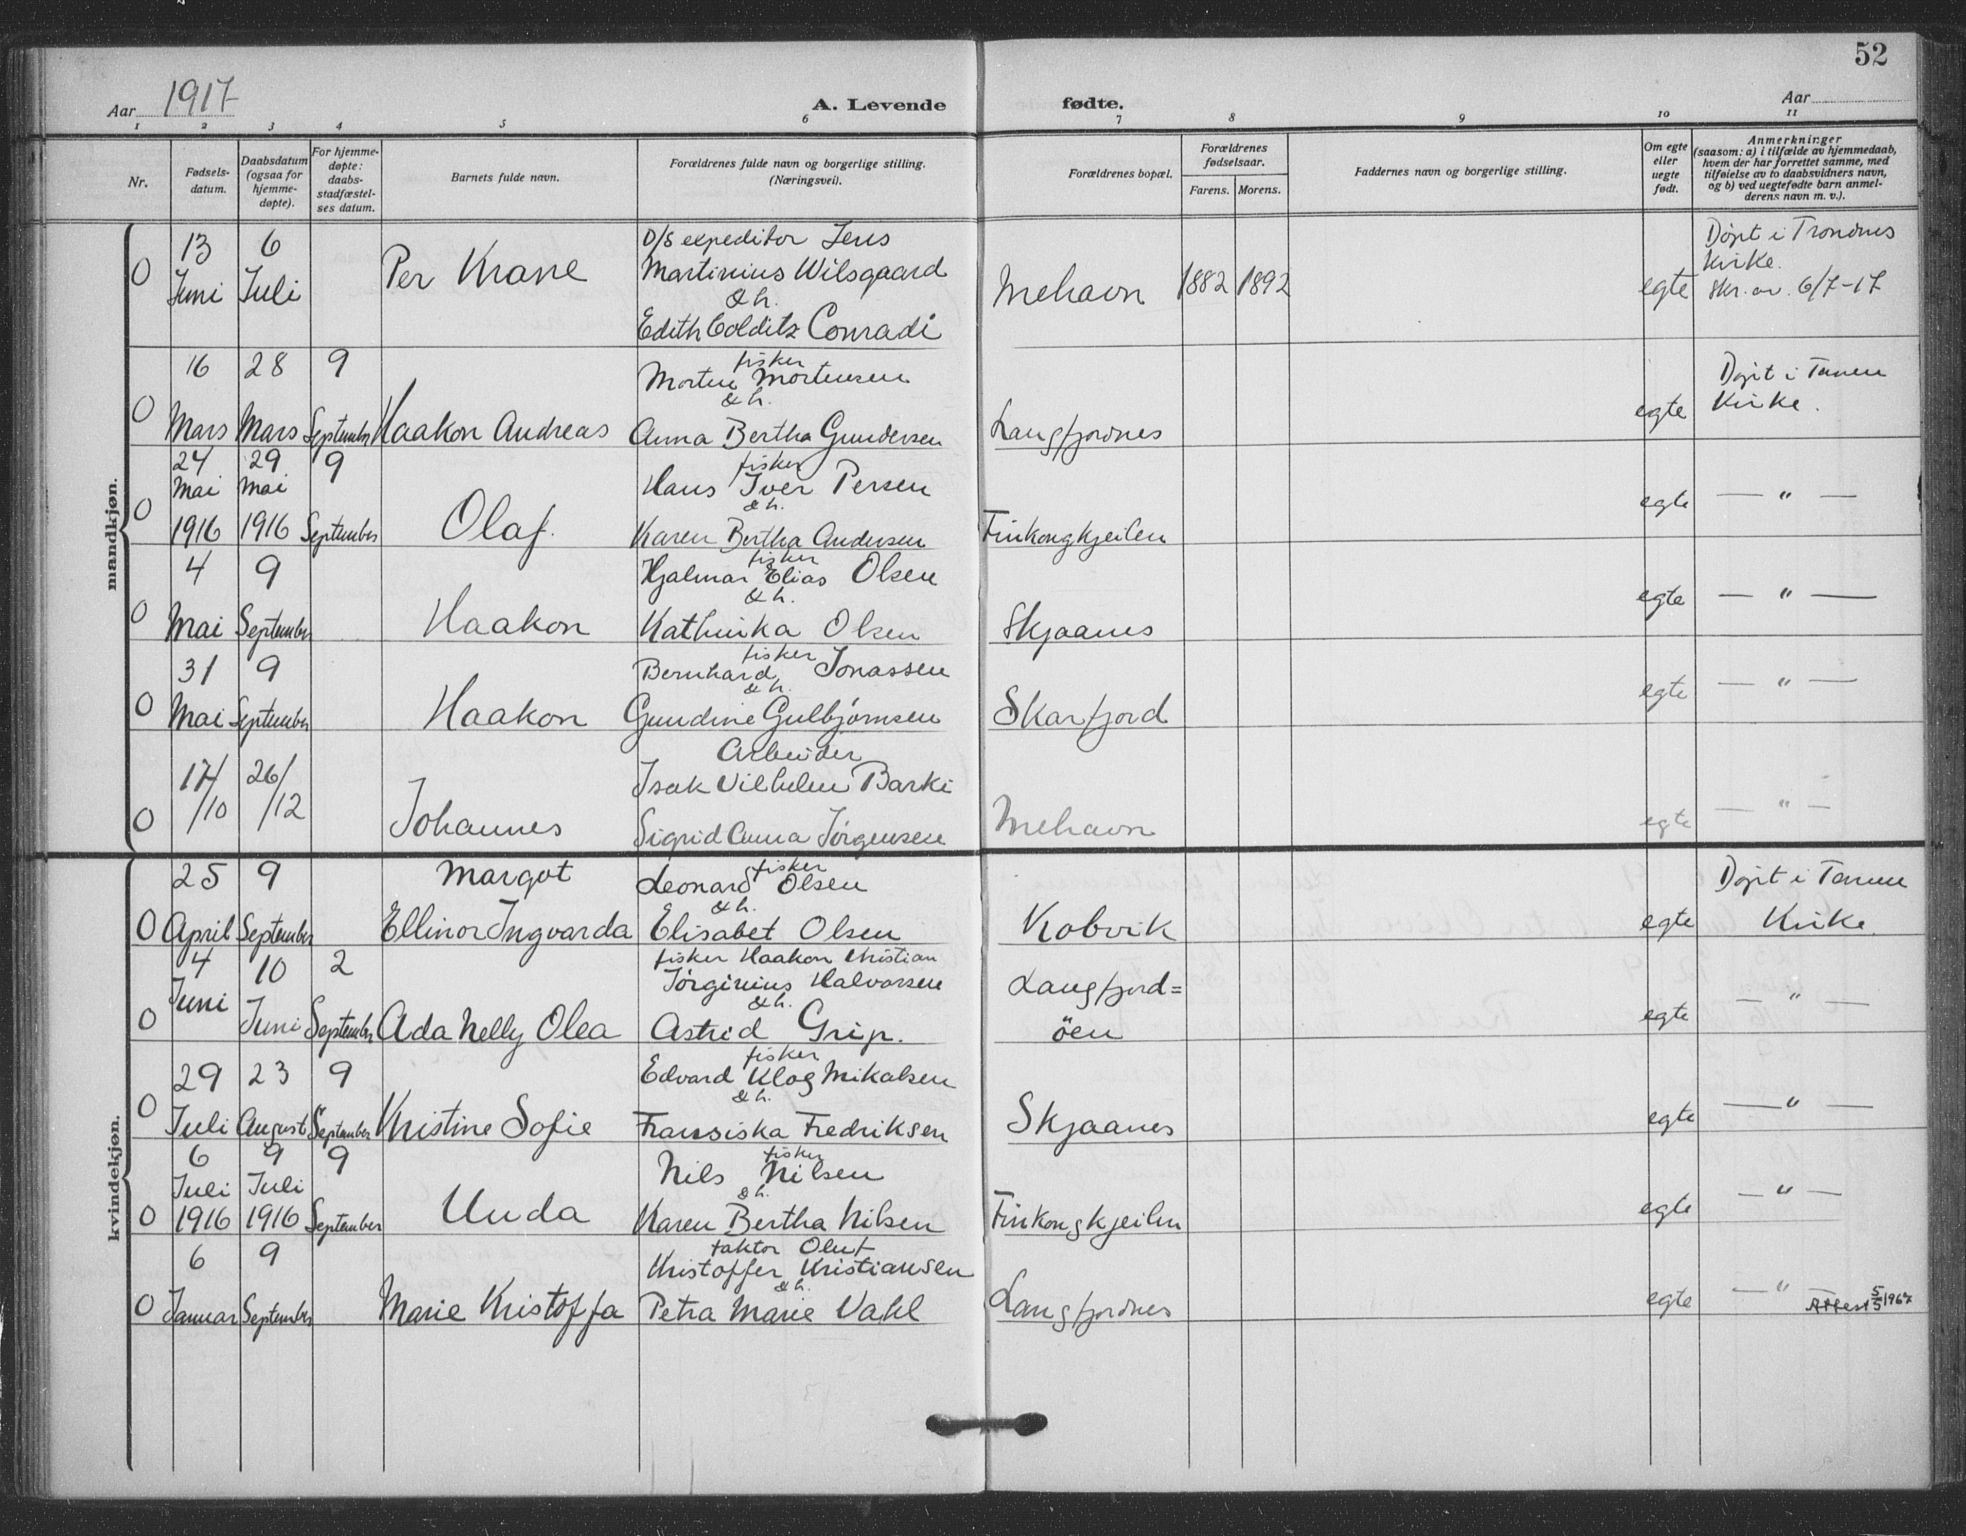 52
Aar 1917
A. Levende fødte.
Aar
1 2 3 4 5 6 7 8 9 10 11
Nr.
Fødsels-
datum.
Daabsdatum
(ogsaa for
hjemme-
døpte).
For hjemme-
døpte:
daabs-
stadfæstel-
ses datum.
Barnets fulde navn.
Forældrenes fulde navn og borgerlige stilling.
(Næringsvei).
Forældrenes bopæl.
Forældrenes
fødselsaar.
Farens. Morens.
Faddernes navn og borgerlige stilling.
Om egte
eller
uegte
født.
Anmerkninger
(saasom: a) i tilfælde av hjemmedaab,
hvem der har forrettet samme, med
tilføielse av to daabsvidners navn,
og b) ved uegtefødte barn anmel-
derens navn m. v.).
mandkjøn.
0 13 Juni 6 Juli Per Krane
D/S expeditor Jens
Martinius Wilsgaard
& h.
Edith Colditz Conradi
Mehavn 1882 1892 egte
Døpt i Trondnes
Kirke.
Skr. av. 6/7-17
0 16 Mars 28 Mars 9 September Haakon Andreas
fisker
Morten Mortensen
& h.
Anna Bertha Gundersen
Langfjordnes egte
Døpt i Tanen
Kirke.
0 24 Mai 1916 29 Mai 1916 9 September Olaf.
fisker
Hans Iver Persen
& h.
Karen Bertha Andersen
Finkongkjeilen egte — " —
0 4 Mai 9 September Haakon
fisker
Hjalmar Elias Olsen
& h.
Kathinka Olsen
Skjaanes egte — " —
0 31 Mai 9 September Haakon
fisker
Bernhard Jonassen
& h.
Gundine Gulbjørnsen
Skarfjord egte — " —
0 17/10 26/12 Johannes
Arbeider
Isak Vilhelm Barki
Sigrid Anna Jørgensen
Mehavn egte — " —
kvindekjøn.
0 25 April 9 September Margot
Ellinor Ingvarda
fisker
Leonard Olsen
& h.
Elisabet Olsen
Kobvik egte
Døpt i Tanen
Kirke.
0 4 Juni 10 Juni 2 September Ada Nelly Olea
fisker Haakon Kristian
Jørginius Halvorsen
& h.
Astrid Grip.
Langfjord=
øen egte — " —
0 29 Juli 23 August 9 September Kristine Sofie
fisker
Edvard Klog Mikalsen
& h.
Fransiska Fredriksen
Skjaanes egte — " —
0 6 Juli 1916 9 Juli 1916 9 September Unda
fisker
Nils Nilsen
& h.
Karen Bertha Nilsen
Finkongkjeilen egte — " —
0 6 Januar 9 September Marie Kristoffa
faktor Oluf
Kristoffer Kristiansen
& h.
Petra Marie Vahl
Langfjordnes egte — " —
Attest 5/5 1967